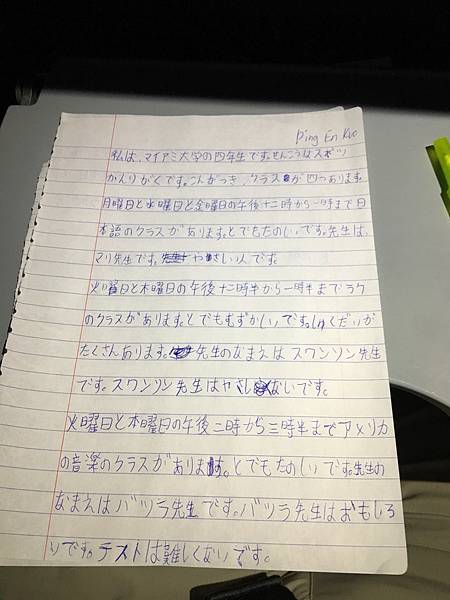 Ping En Kuo
私は、マイアミ大学の四年生です。せんこうはスポーツ
かんりがくです。こんがっき、クラスが四つあります。
月曜日と水曜日と金曜日の午後十二時から一時まで日
本語のクラスがあります。とでもたのしいです。先生は、
マリ先生です。やさしい人です。
火曜日と木曜日の午後十二時半から一時半までラク
のクラスがあります。とでもむずかしいです。しゅくだいが
たくさんあります。先生のなまえはスワンソン先生
です。スワンソン先生はやさしくないです。
火曜日と木曜日の午後二時から三時半までアメリカ
の音楽のクラスがあります。とでもたのしいです。先生の
なまえはバツラ先生です。バツラ先生はおもしろ
いです。テストは難しくないです。